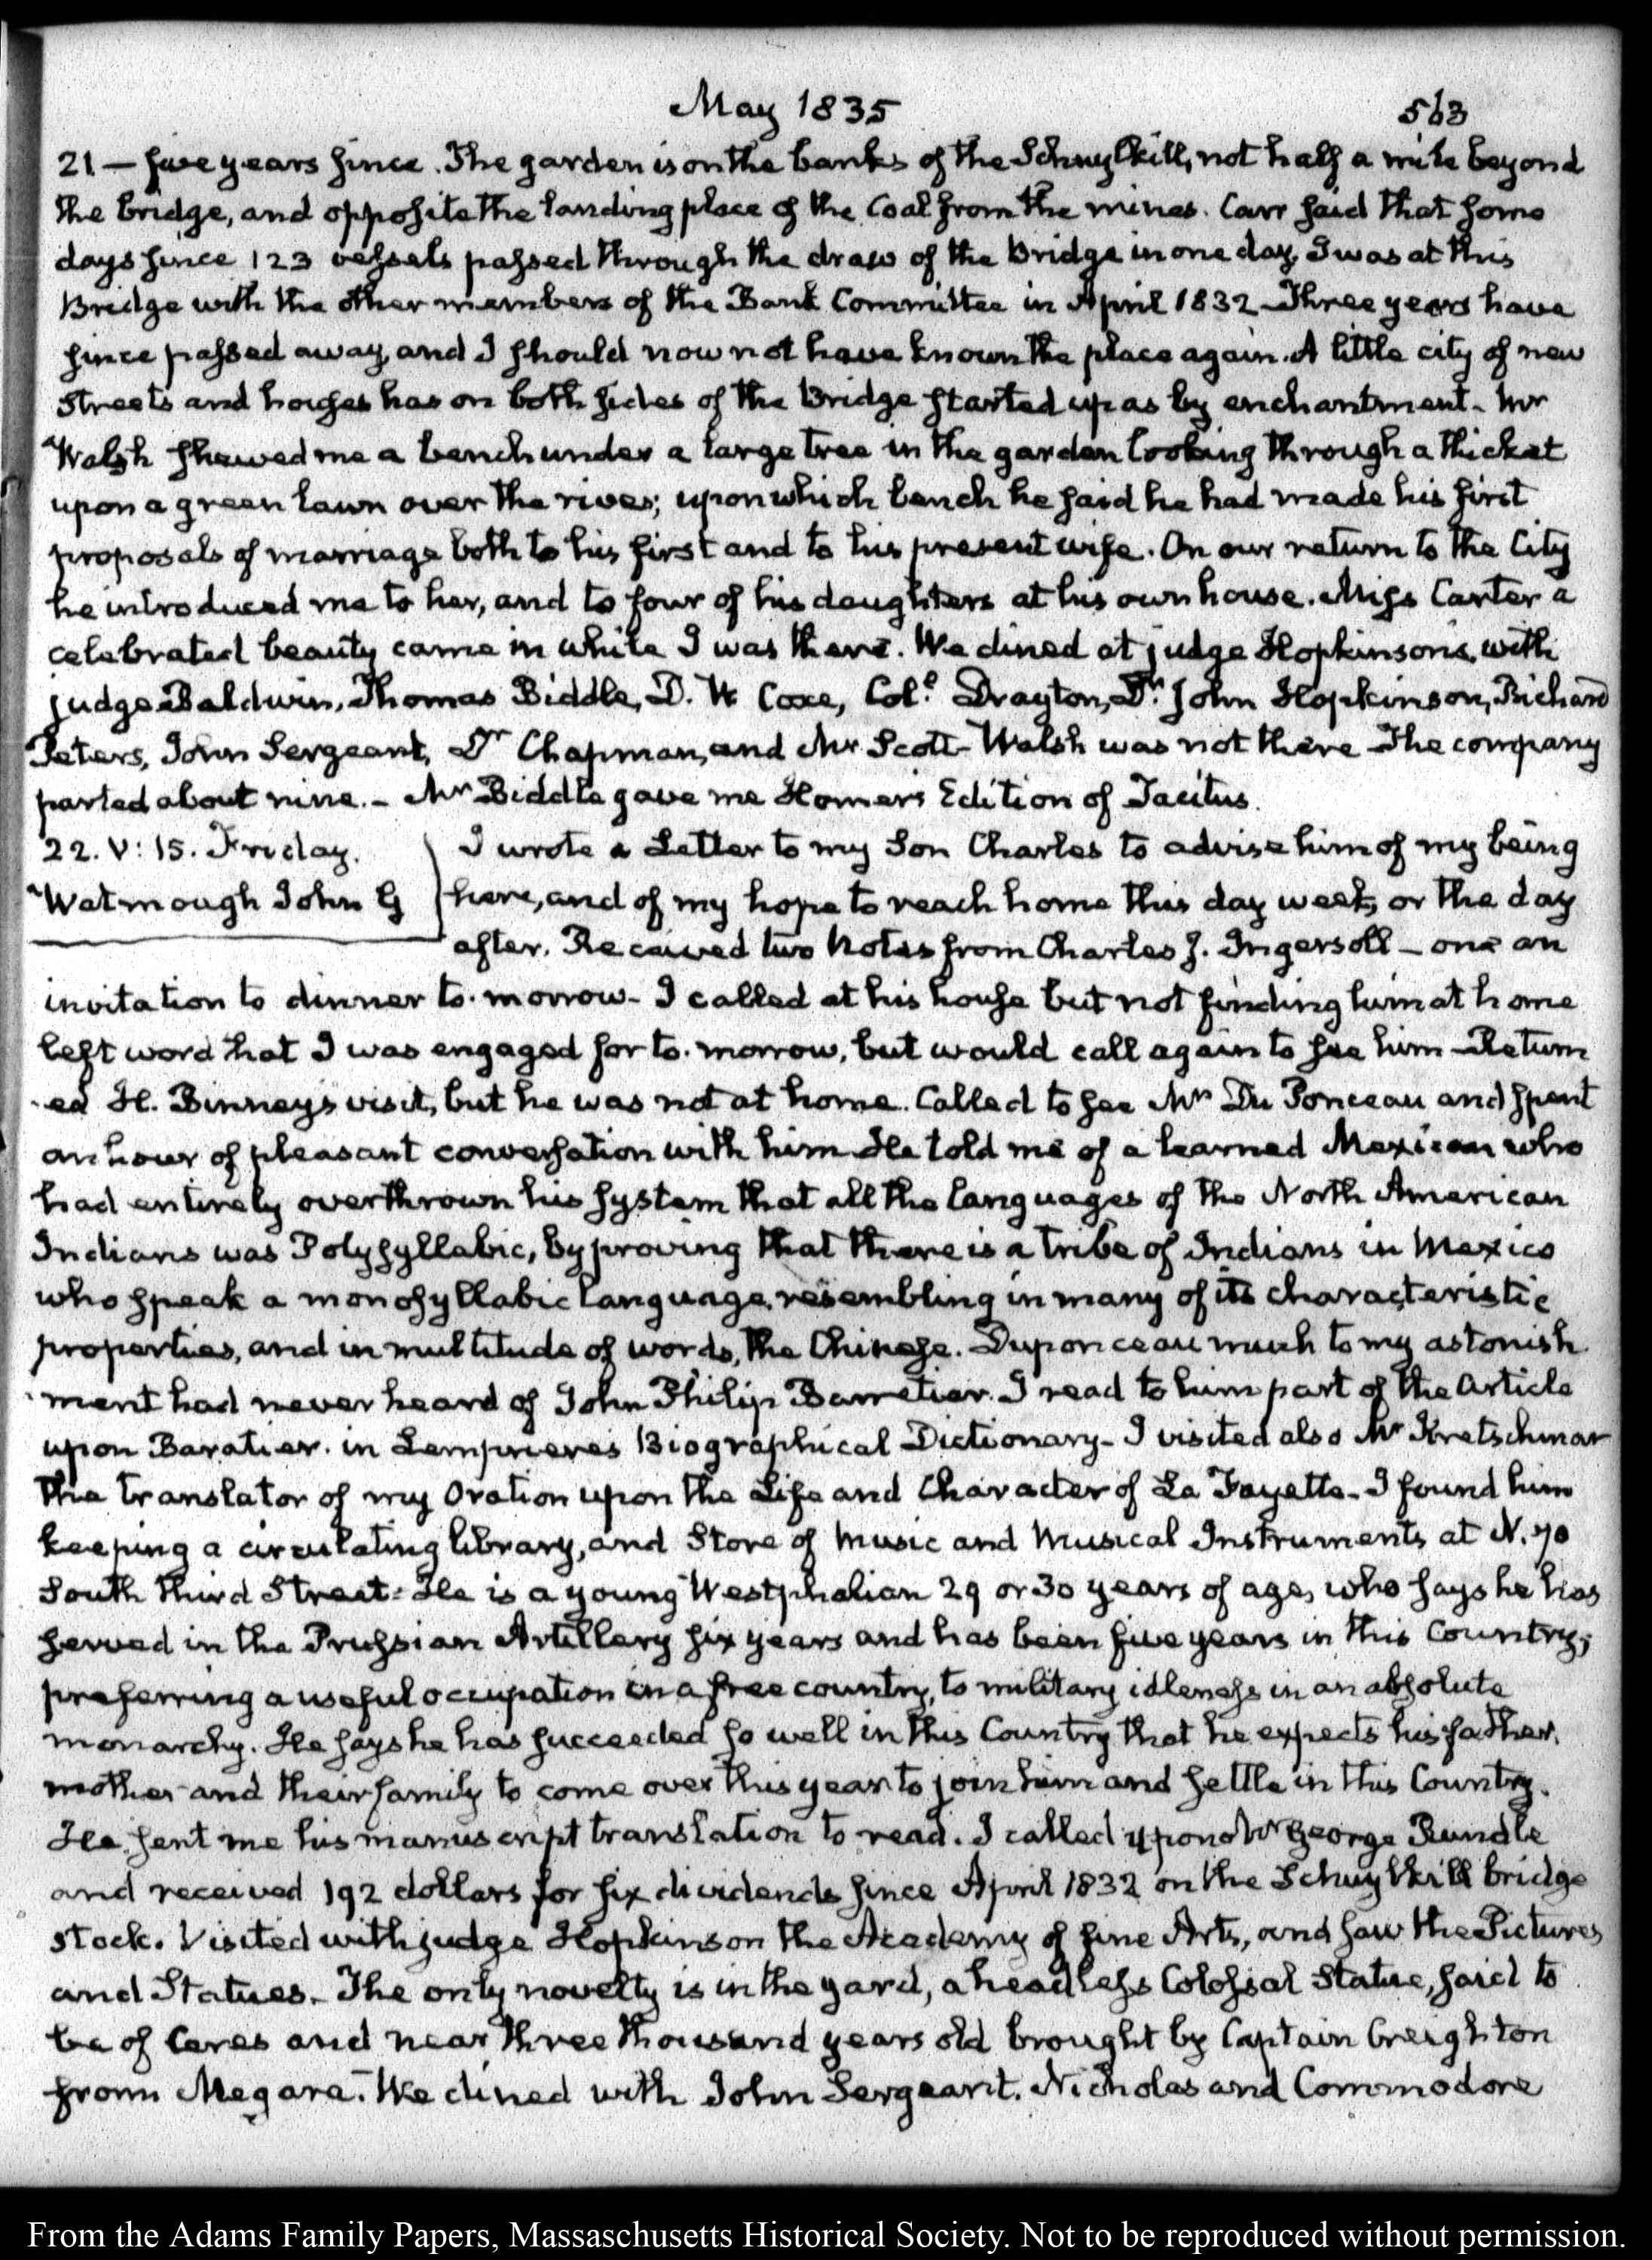 May 1835 563
21 — five years since. The garden is on the banks of the Schuylkill, not half a mile beyond
the bridge, and opposite the landing place of the Coal from the mines. Carr said that some
days since 123 vessels passed through the draw of the Bridge in one day, I was at this
Bridge with the other members of the Bank Committee in April 1832 - Three years have
since passed away, and I should now not have known the place again. A little city of new
Streets and houses has on both sides of the Bridge started up as by enchantment. Mr
Walsh shewed me a bench under a large tree in the garden looking through a thicket
upon a green lawn over the river; upon which bench he said he had made his first
proposals of marriage both to his first and to his present wife. On our return to the City
he introduced me to her, and to four of his daughters at his own house. Miss Carter a
celebrated beauty came in while I was there. We dined at judge Hopkinson's, with
judge Baldwin, Thomas Biddle, D. W Coxe, Col.o Drayton, Dr John Hopkinson, Richard
Peters, John Sergeant, Dr Chapman, and Mr Scott - Walsh was not there - The company
parted about nine. - Mr Biddle gave me Homer's Edition of Tacitus.
22. V: 15. Friday. I wrote a Letter to my Son Charles to advise him of my being
Watmough John G here, and of my hope to reach home this day week, or the day
after. Received two Notes from Charles J. Ingersoll - one an
invitation to dinner to-morrow - I called at his house but not finding him at home
left word that I was engaged for to-morrow, but would call again to see him - Return
-ed H. Binney's visit, but he was not at home. Called to see Mr Du Ponceau and spent
an hour of pleasant conversation with him He told me of a learned Mexican who
had entirely overthrown his system that all the languages of the North American
Indians was Polysyllabic, by proving that there is a tribe of Indians in Mexico
who speak a monosyllabic language, resembling in many of its characteristic
properties, and in multitude of words, the Chinese. Duponceau much to my astonish
-ment had never heard of John Philip Barretier. I read to him part of the article
upon Baratier in Lempriere's Biographical Dictionary - I visited also Mr Kretschmar
the translator of my Oration upon the Life and Character of La Fayette - I found him
keeping a circulating library, and Store of Music and Musical Instruments at N. 70
South third Street - He is a young Westphalian 29 or 30 years of age, who says he has
served in the Prussian Artillery six years and has been five years in this Country;
preferring a useful occupation in a free country, to military idleness in an absolute
monarchy. He says he has succeeded so well in this Country that he expects his father,
mother and their family to come over this year to join him and settle in this Country.
He sent me his manuscript translation to read. I called upon Mr George Rundle
and received 192 dollars for six dividends since April 1832 on the Schuylkill bridge
stock. Visited with judge Hopkinson the Academy of fine Arts, and saw the Pictures
and Statues - The only novelty is in the yard, a headless Colossal Statue, said to
be of Ceres and near three thousand years old brought by Captain Creighton
from Megara. We dined with John Sergeant. Nicholas and Commodore
From the Adams Family Papers, Massaschusetts Historical Society. Not to be reproduced without permission.